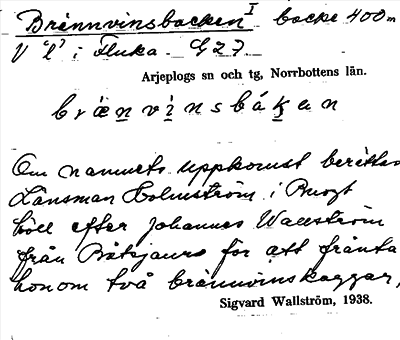 Brännvinsbacken I backe 400 m
V "l" i Fluka G27
Arjeplogs sn och tg, Norrbottens län.
brä̀nvìnsbákan
Om namnets uppkomst berättas
Länsman Holmström i
höll efter Johannes Wallström
från Båtsjaur för att frånta
honom två brännvinskaggar,
Sigvard Wallström, 1938.